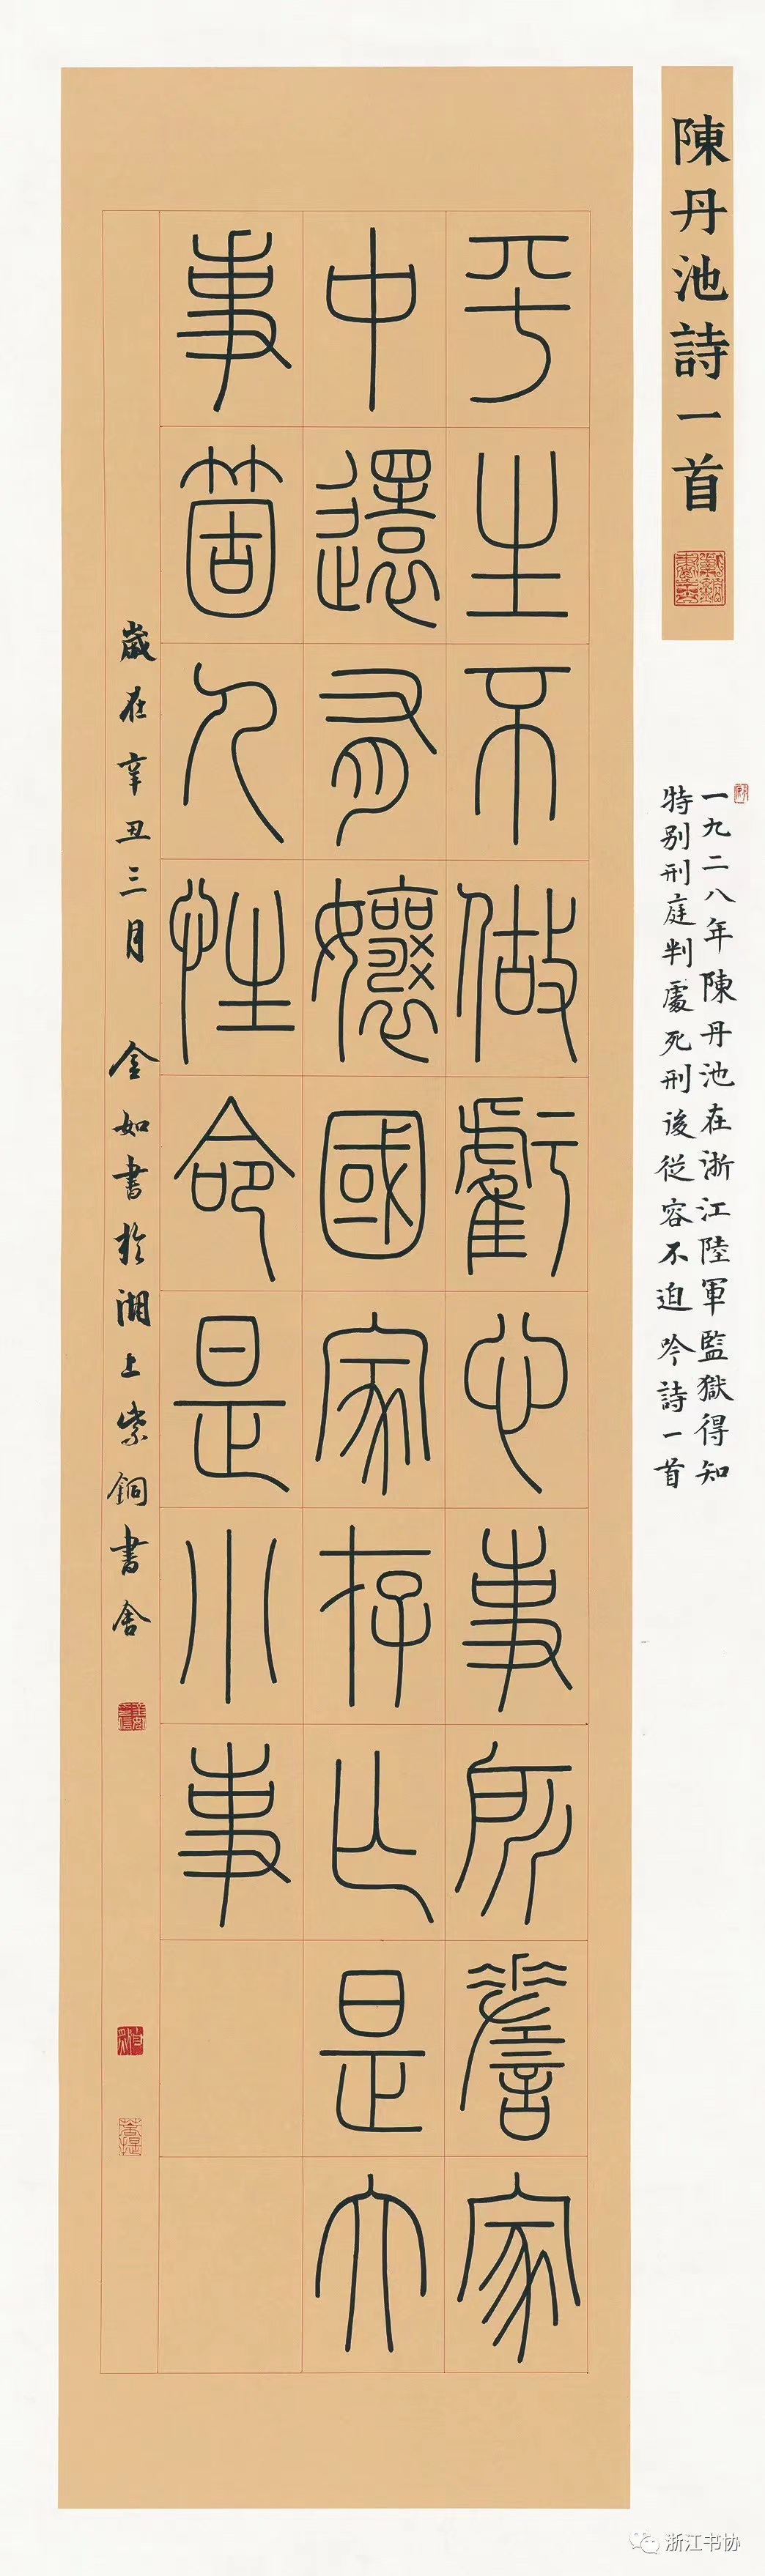 陳丹池詩一首
一九二八年陳丹池在浙江陸軍監獄得知
特别刑庭判處死刑後從容不迫吟詩一首
平生不做虧心事所嗟家
中還有孃國家存亡是大
事箇人性命是小事
歲在辛丑三月 金如書於湖上紫銅書舍
浙江书协